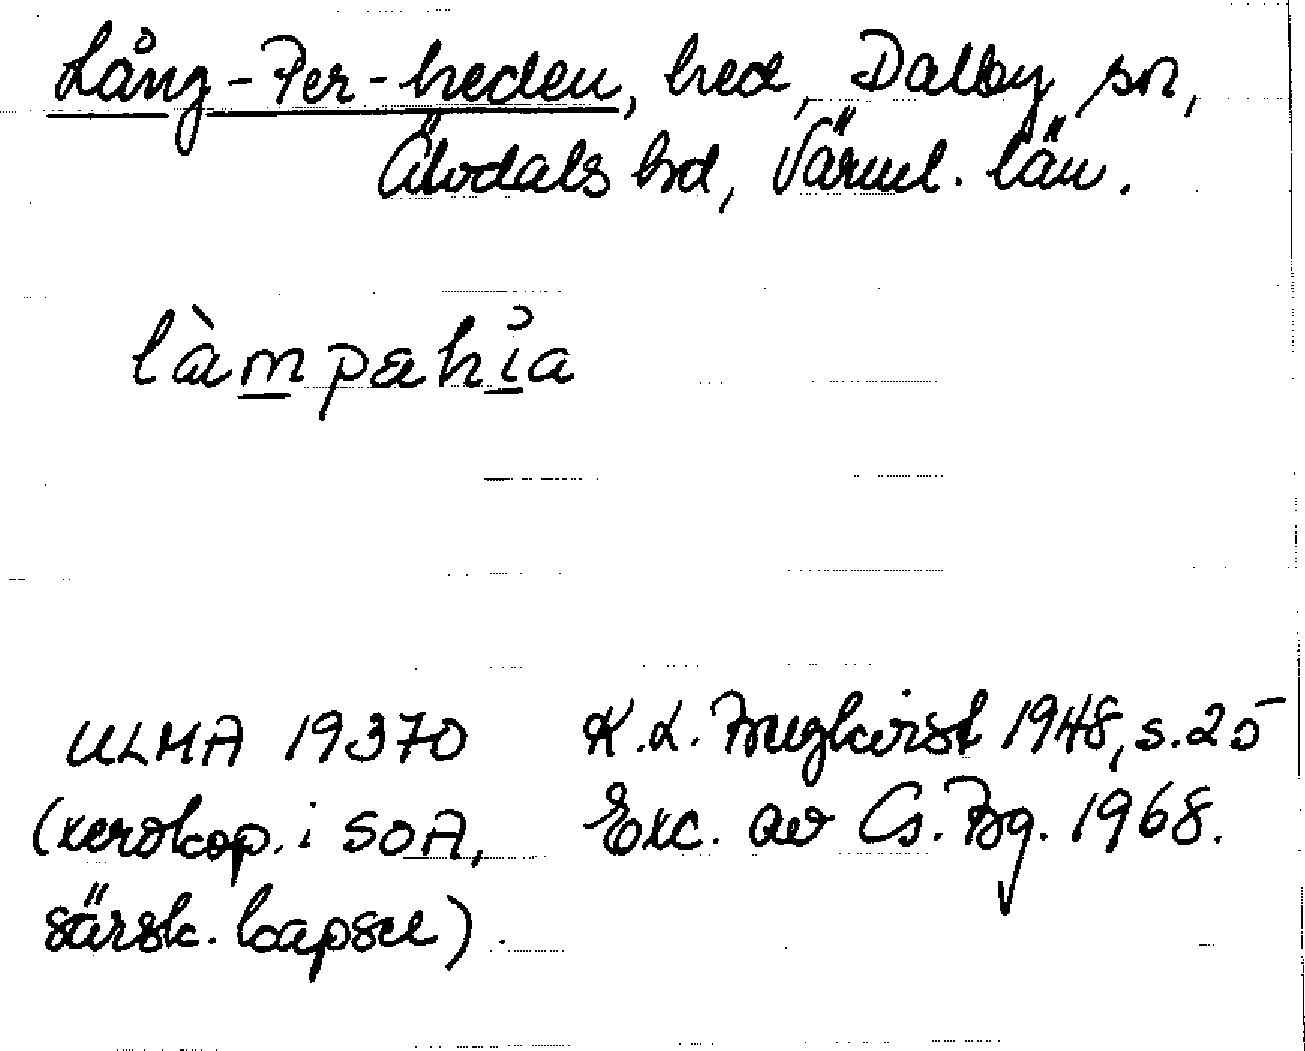 Lång-Per-heden, hed, Dalby sn,
Älvdals hd, Värml. län.
làmpæhia
ULMA 19370
(xerokop. i SOA,
särsk. kapsel).
K.L. 1948, s. 25
Exc. av Cs. Bg. 1968.